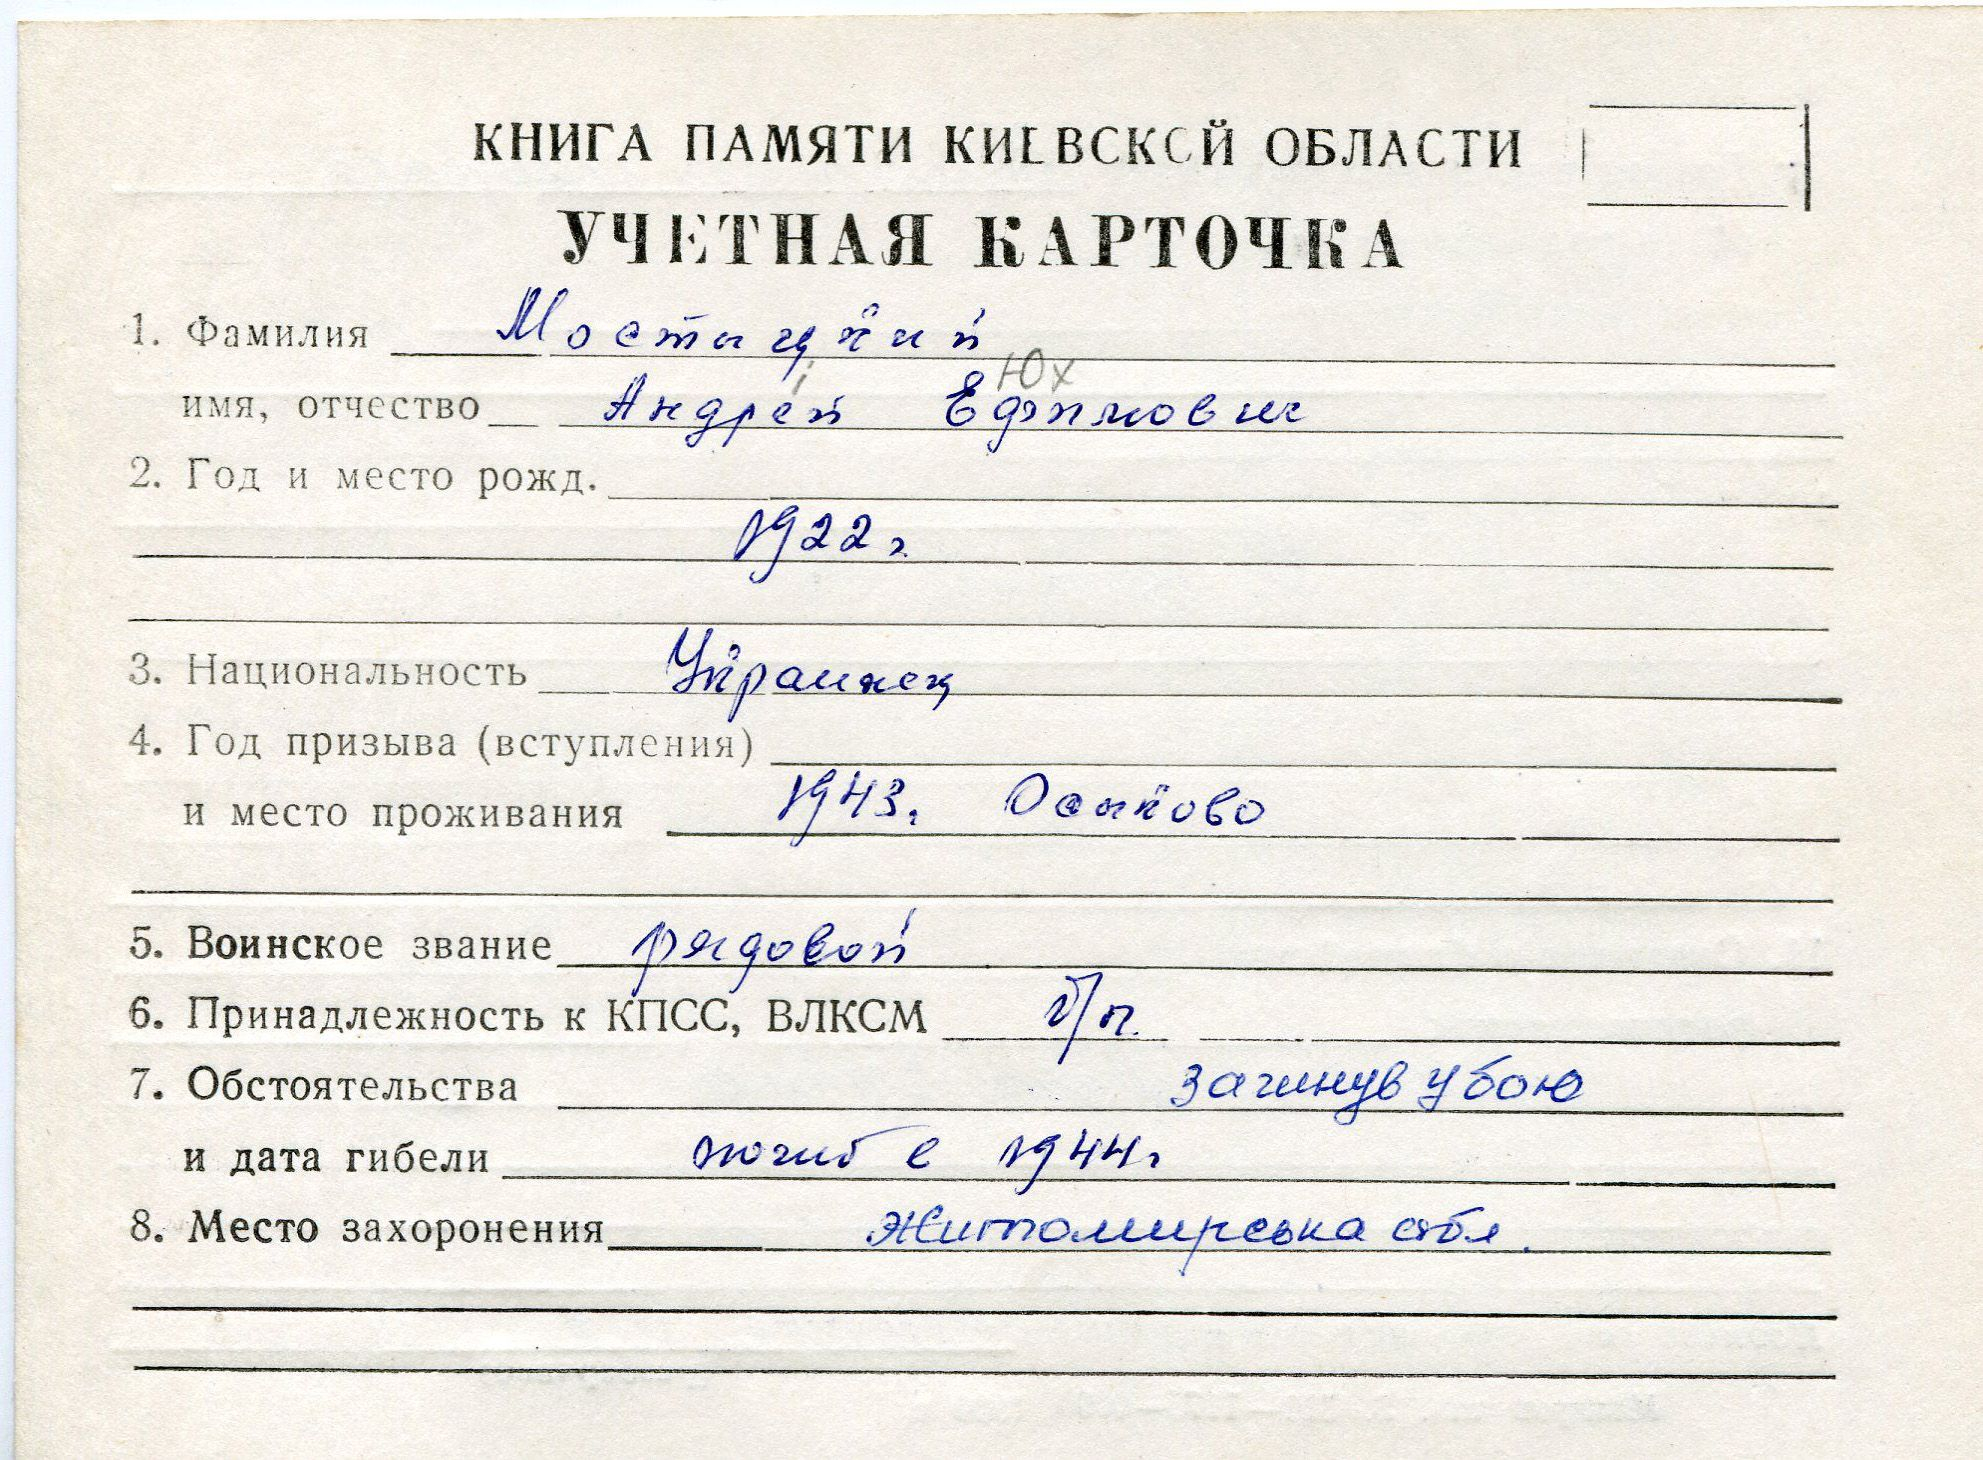 КНИГА ПАМЯТИ КИЕВСКОЙ ОБЛАСТИ
УЧЕТНАЯ КАРТОЧКА
1. Фамилия Мостицкий
Юх
і
имя, отчество Андрей Ефимович
2. Год и место рожд.
1922г.
3. Национальность Украинец
4. Год призыва (вступления)
и место проживания 1943г. Осыково
5. Воинское звание рядовой
6. Принадлежность к КПСС, ВЛКСМ б/п.
7. Обстоятельства загинув у бою
и дата гибели погиб в 1944г.
8. Место захоронения Житомирська обл.